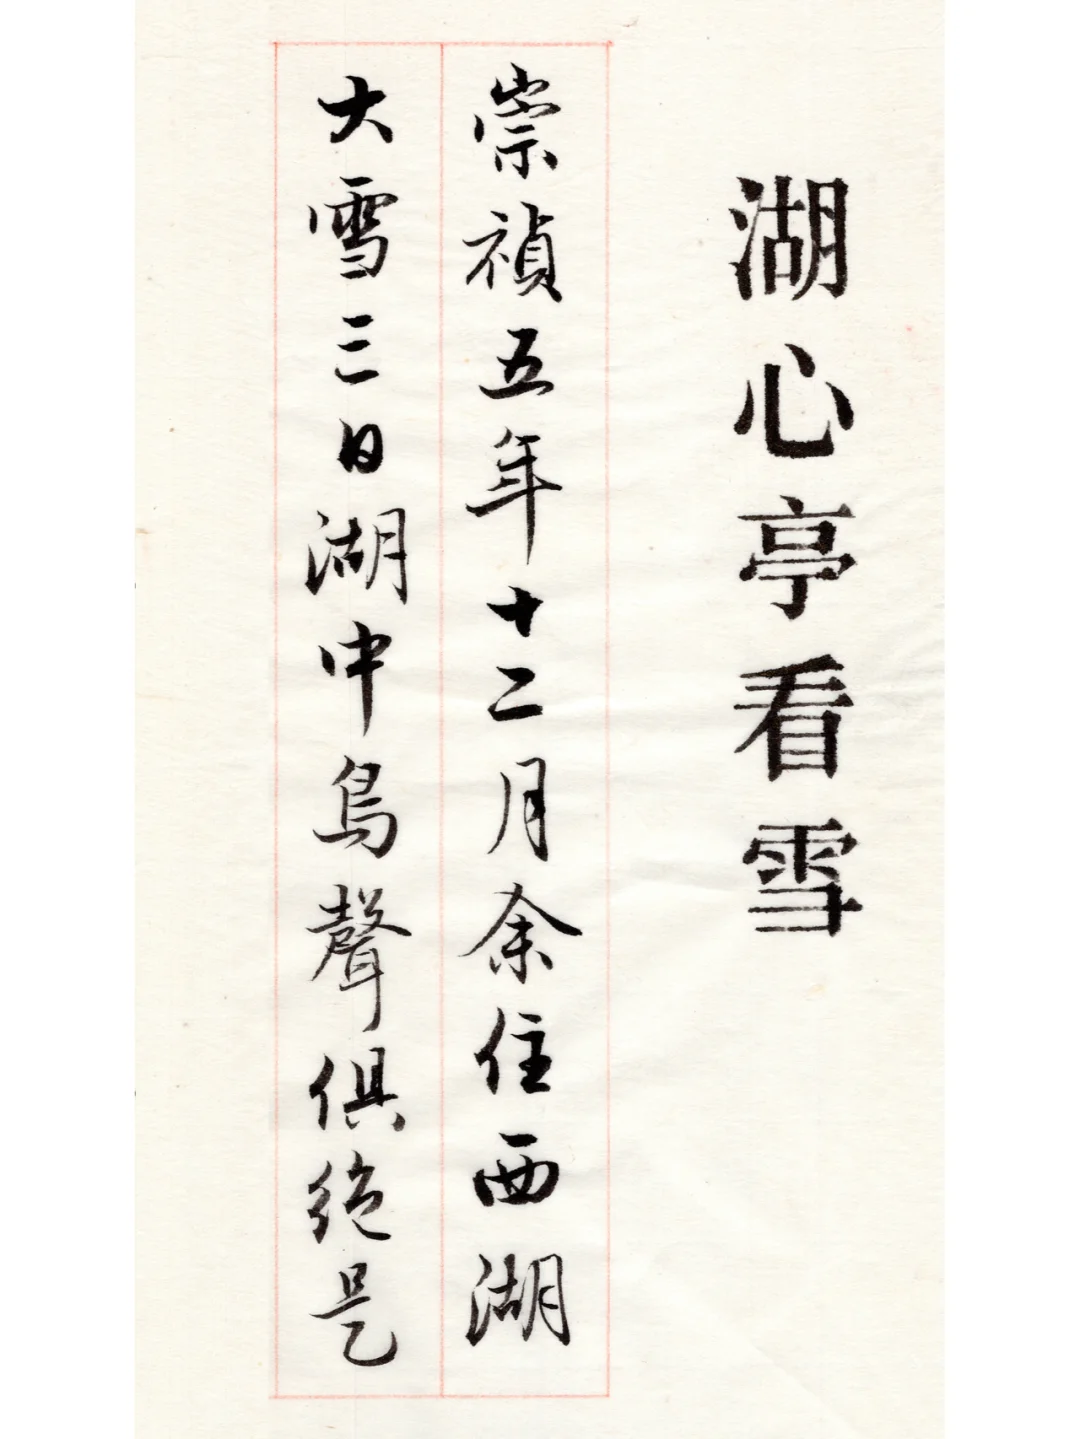 湖心亭看雪
崇禎五年十二月余住西湖
大雪三日湖中鳥聲俱絶是